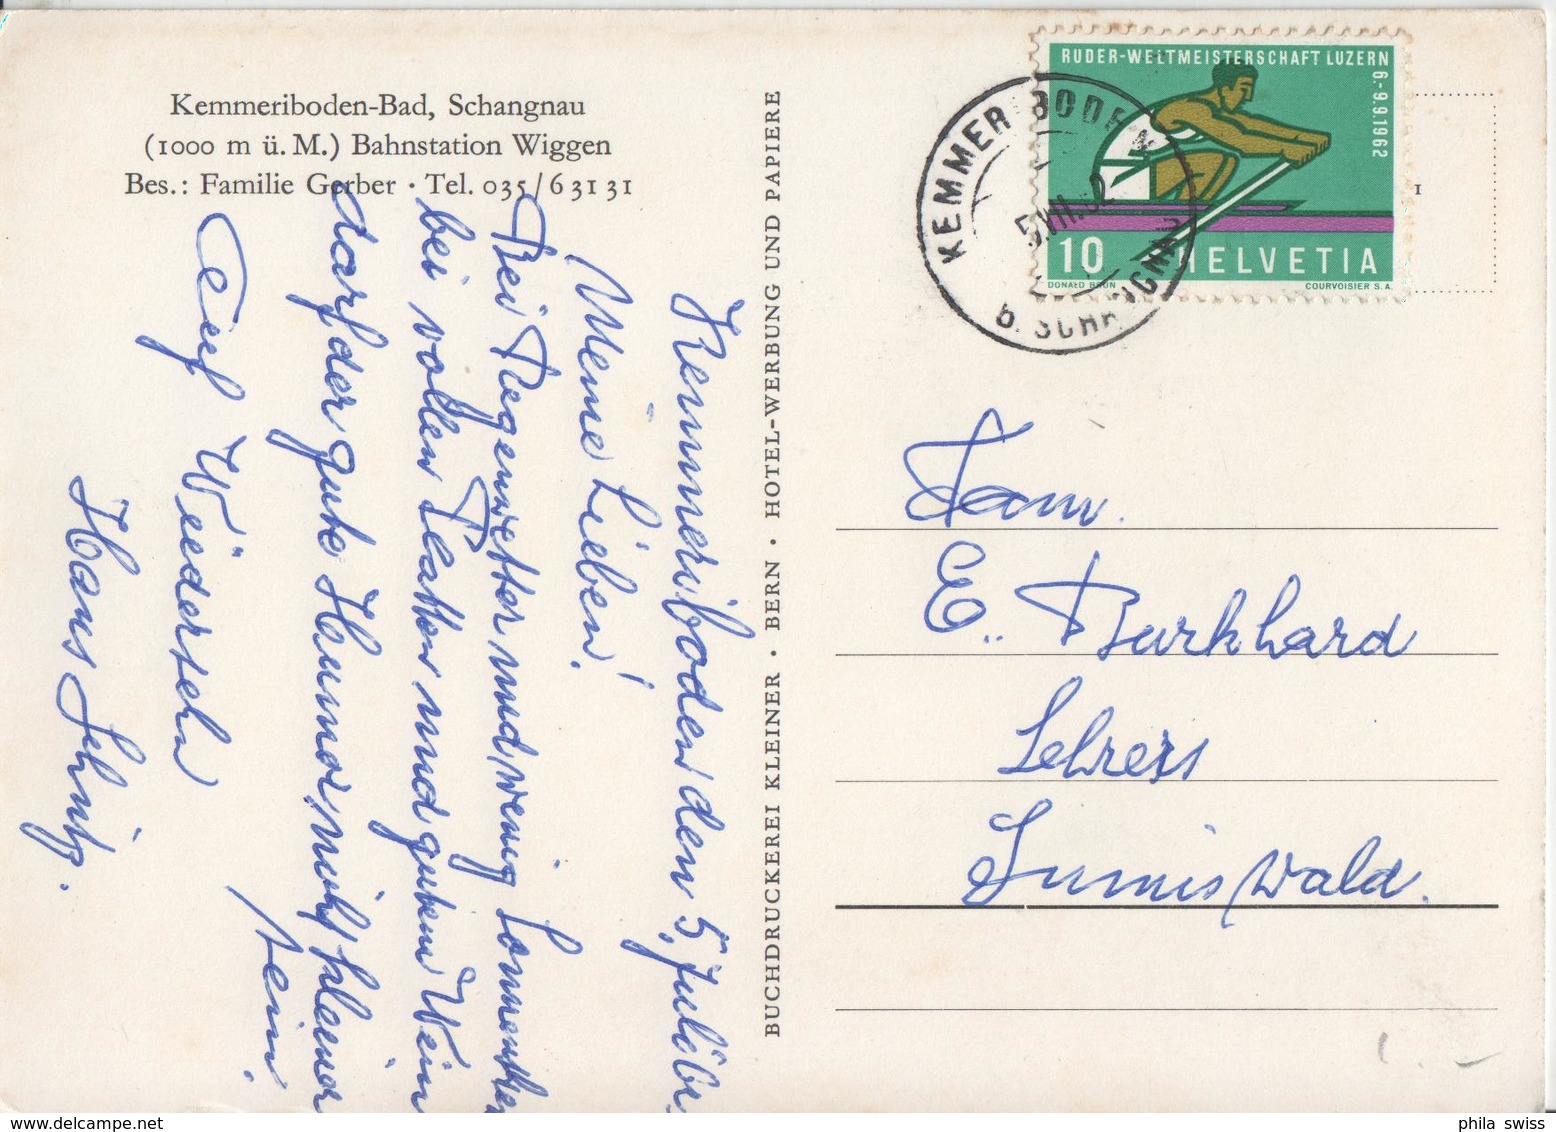 Kemmeriboden-Bad, Schangnau
(1000 m ü. M.) Bahnstation Wiggen
Bes.: Familie Gerber · Tel. 035/6 31 31
BUCHDRUCKEREI KLEINER · BERN · HOTEL-WERBUNG UND PAPIERE
RUDER-WELTMEISTERSCHAFT LUZERN
6.-9.9.1962
10 HELVETIA
DONALD BRUN COURVOISIER S.A.
KEMMERIBODEN
5.VII.62
b. SCHANGNAU
Kemmeriboden den 5. Juli 62
Meine Lieben!
Bei Regenwetter und wenig Sonnenschein
bei vollen Platten und gutem Wein
darf der gute Humor nicht kleiner
sein.
Auf Wiedersehn
Hans
Fam.
E. Burkhard
Lehrers
Sumiswald.
phila swiss